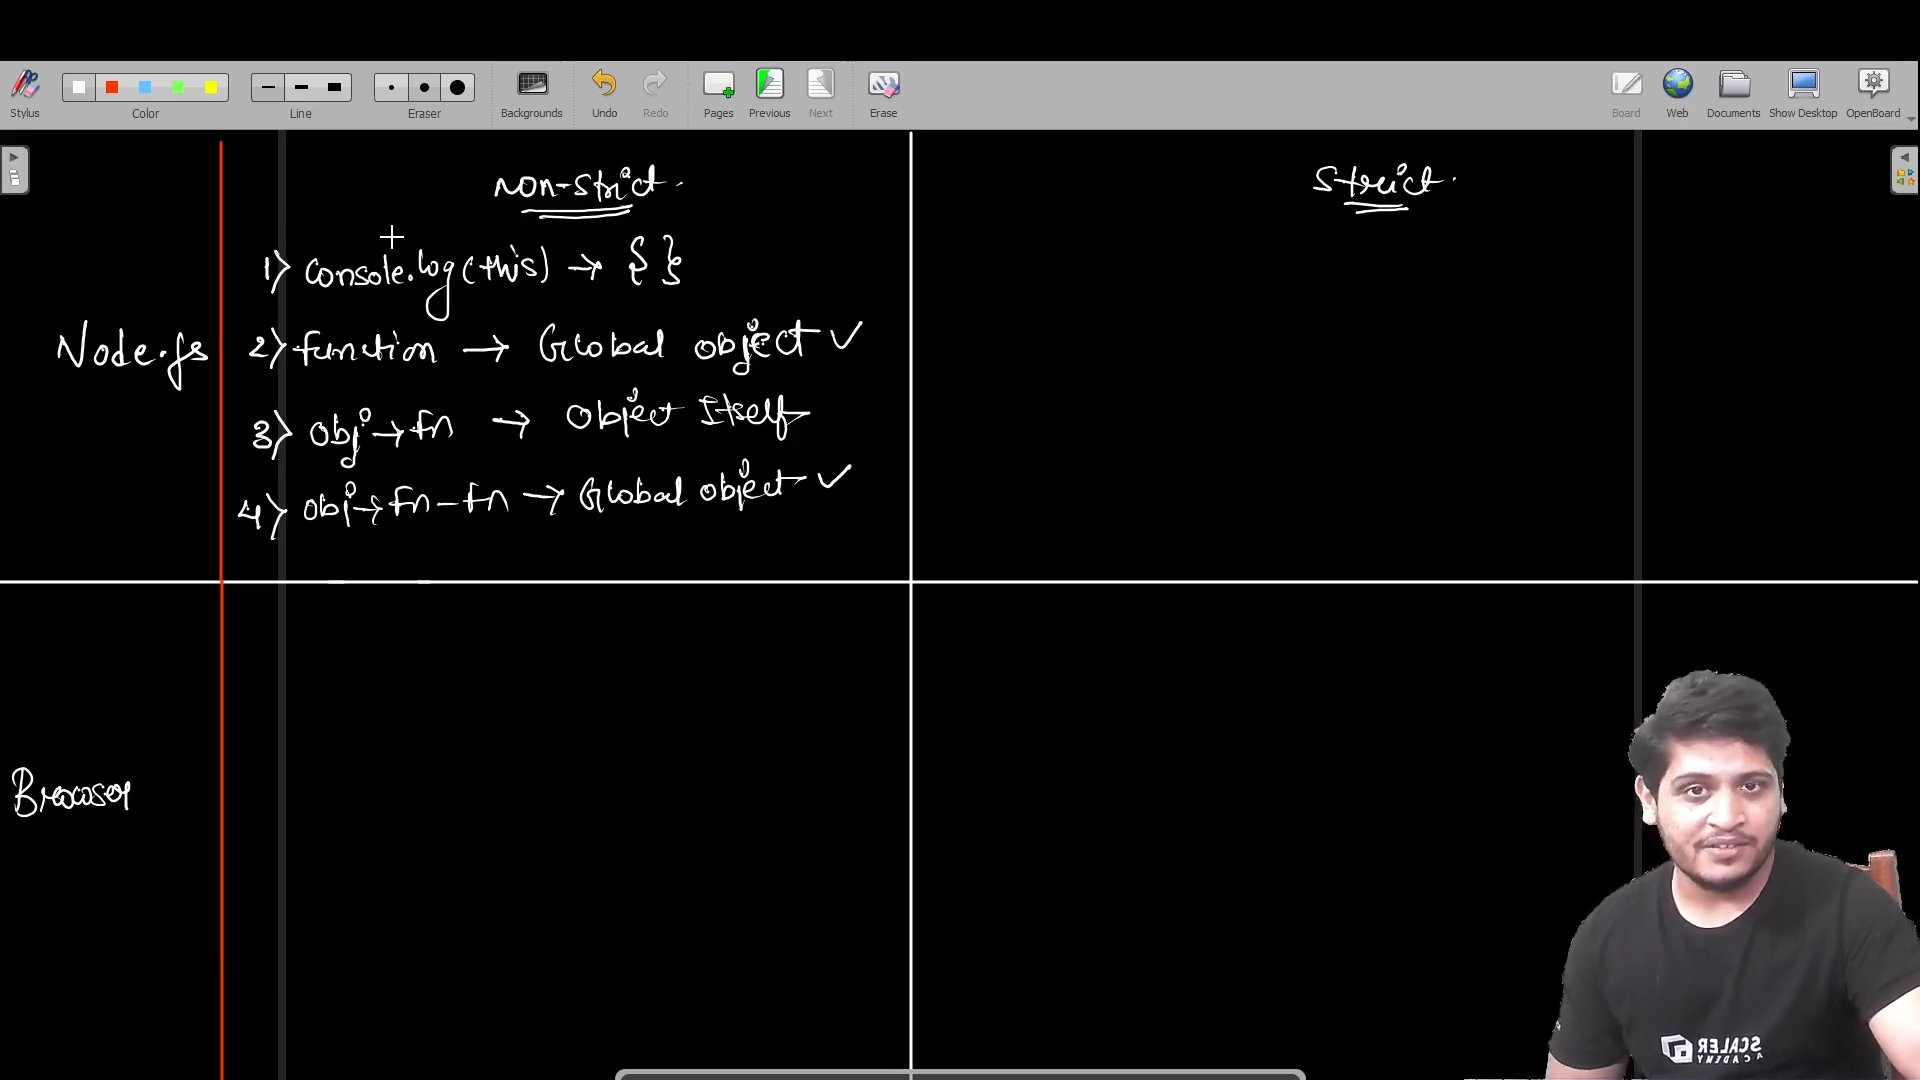 Stylus
Color
Line
Eraser
Backgrounds
Undo
Redo
Pages
Previous
Next
Erase
Board
Web
Documents
Show Desktop
OpenBoard
non-strict
strict
1) console.log(this) → { }
Node.js
2) function → Global object ✓
3) Obj → fn → Object Itself
4) Obj → fn - fn → Global object ✓
Browser
SCALER
ACADEMY